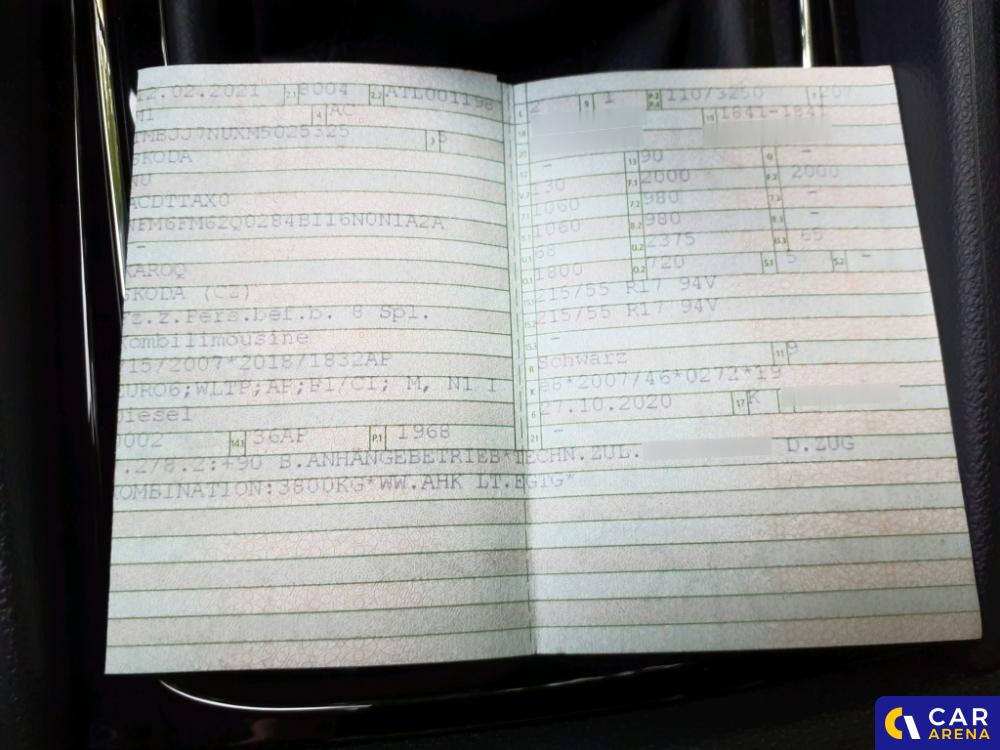 12.02.2021 2.1 8004 2.2 ATL001198
M1 4 AC
TMBJJ7NUXM5025325 3 5
SKODA
NU
ACDTTAX0
NFM6FM62Q0284BI16N0N1A2A
-
KAROQ
SKODA (CZ)
Fz.z.Pers.bef.b. 8 Spl.
Kombilimousine
715/2007*2018/1832AP
EURO6;WLTP;AP;PI/CI; M, N1 I
Diesel
0002 14.1 36AP P.1 1968
7.2/8.2:+90 B.ANHÄNGEBETRIEB*TECHN.ZUL. D.ZUG
KOMBINATION:3800KG*WW.AHK LT.EGTG*
2 9 1 P.2 P.4 110/3250
18 19 1841-1841
20
12 - 13 90 Q -
V.7 130 F.1 2000 F.2 2000
7.1 1060 7.2 980 7.3 -
8.1 1060 8.2 980 8.3 -
U.1 68 U.2 2375 U.3 65
O.1 1800 O.2 720 S.1 5 S.2 -
15.1 215/55 R17 94V
15.2 215/55 R17 94V
15.3 -
R Schwarz 11 9
K e8*2007/46*0272*19
6 27.10.2020 17 K
21 -
CAR
ARENA